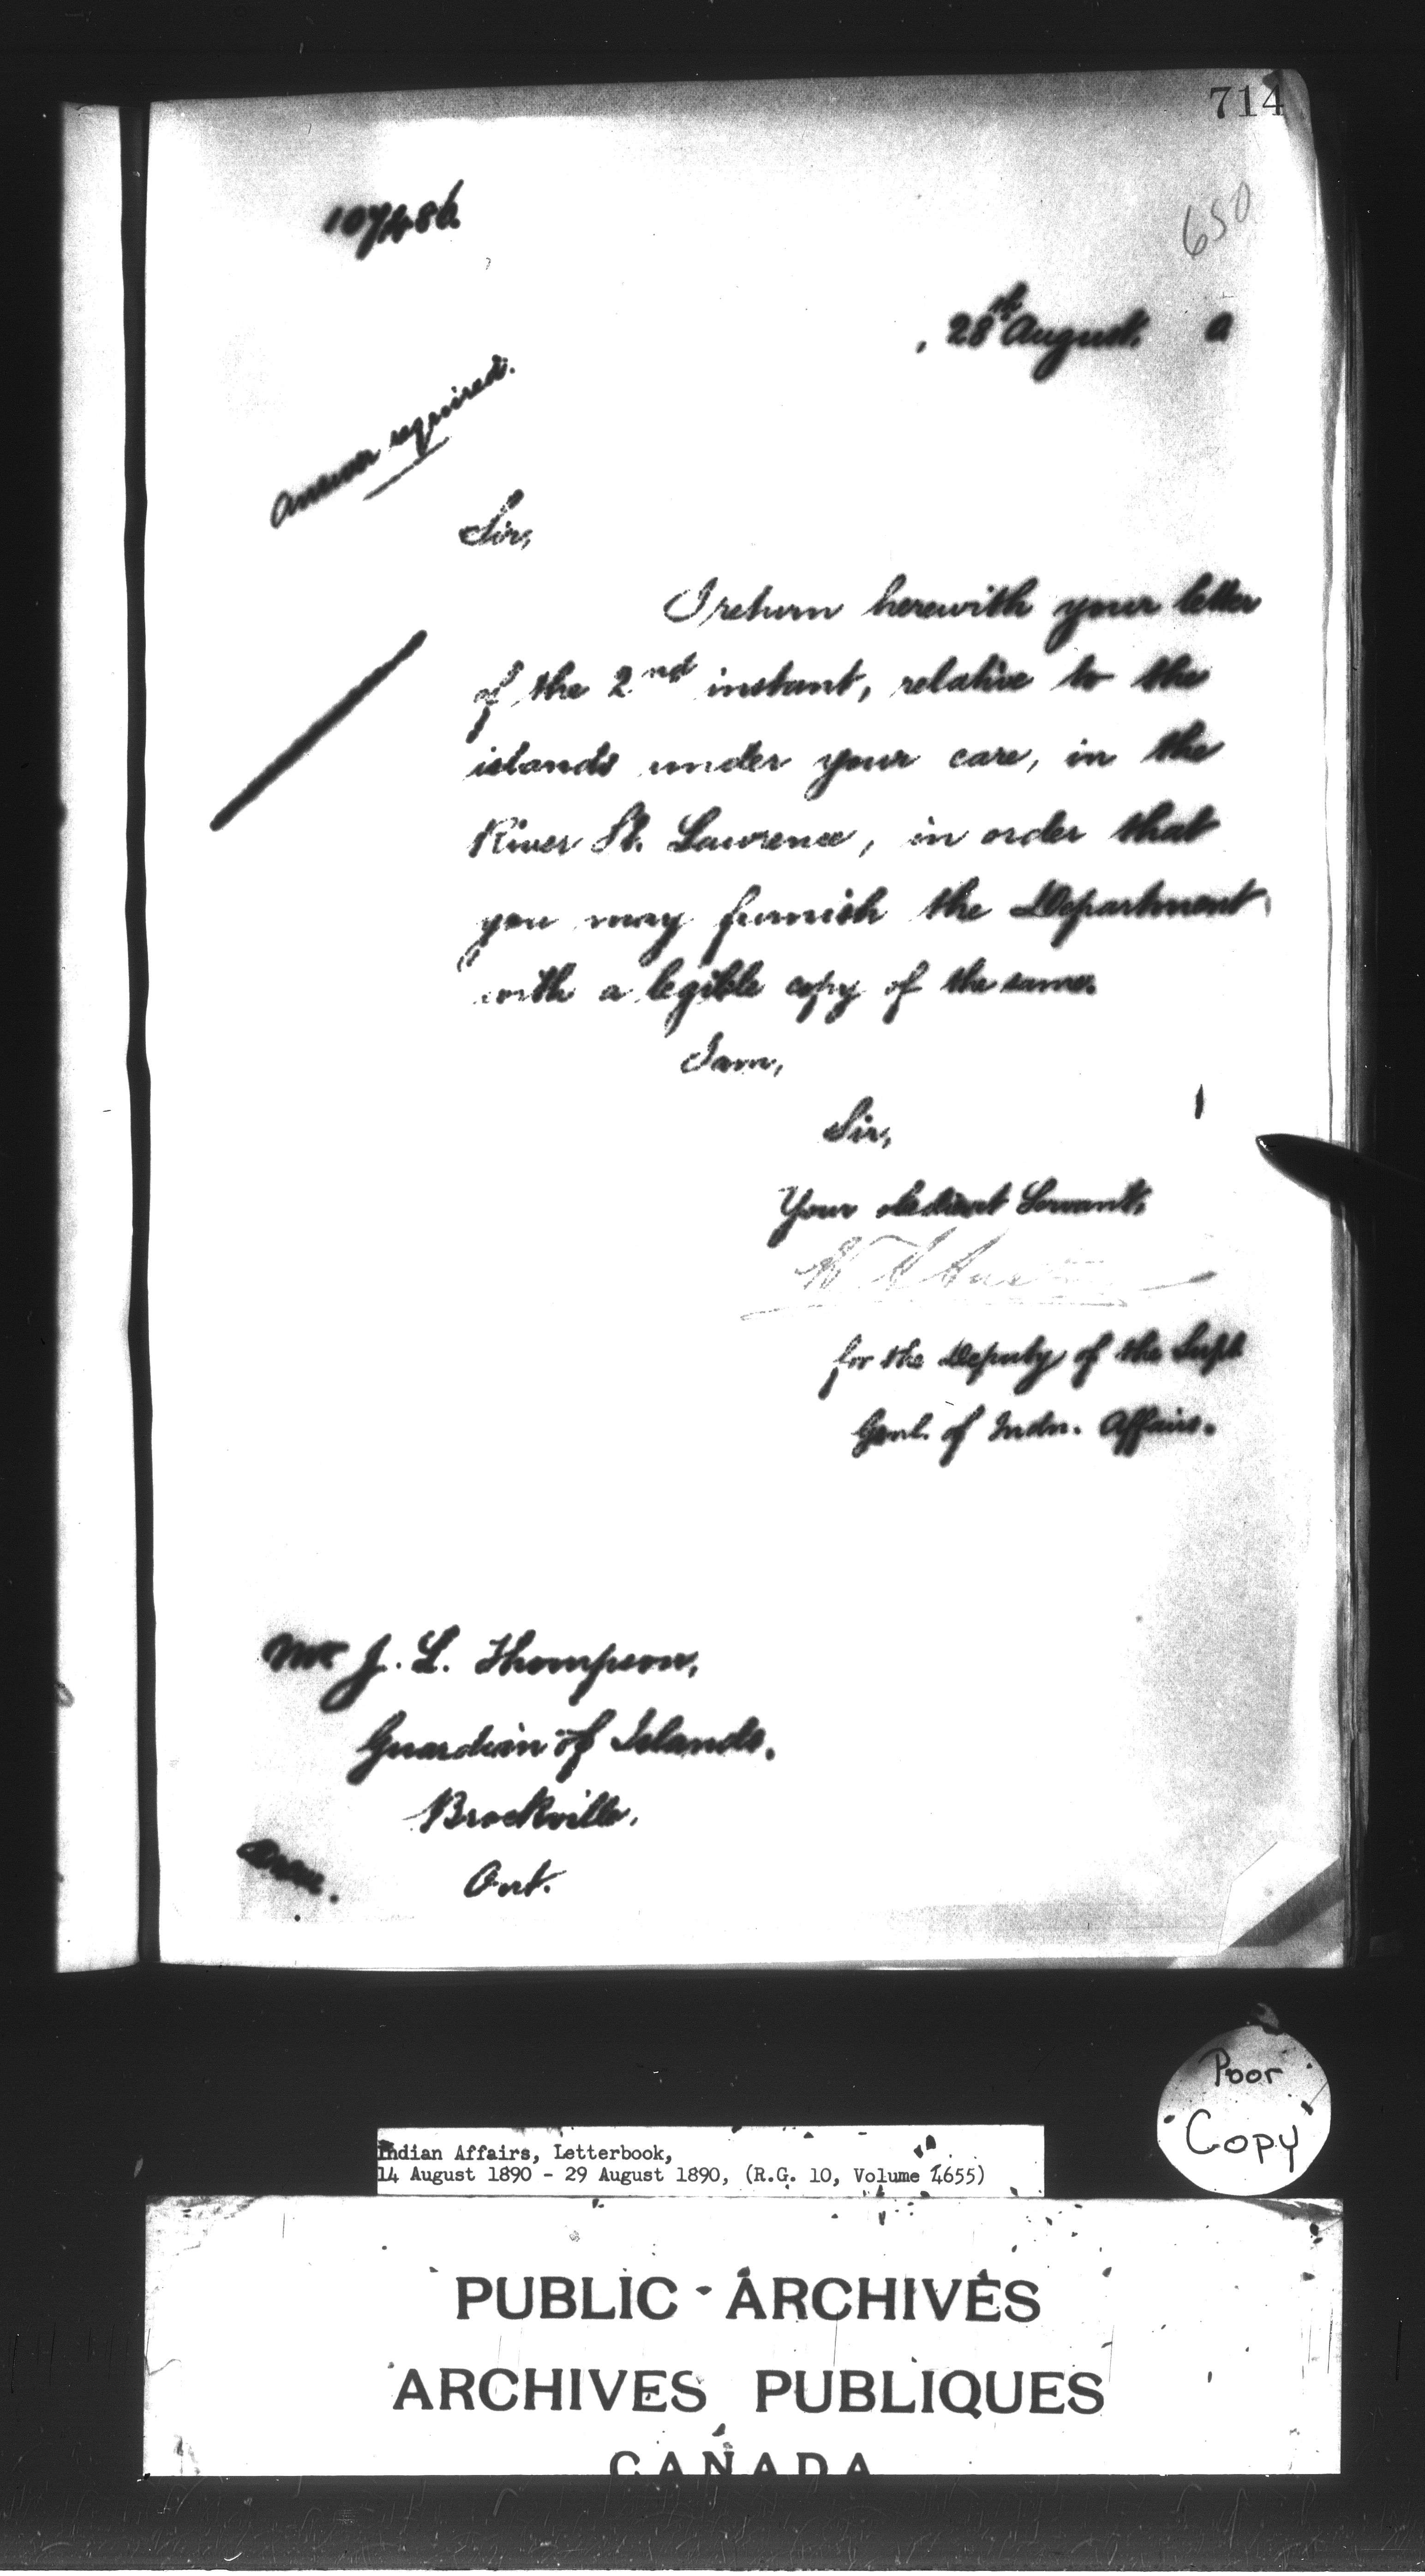 714
107486.
650
28th August. 0
Answer required.
Sir,
I return herewith your letter
of the 2nd instant, relative to the
islands under your care, in the
River St. Lawrence, in order that
you may furnish the Department
with a legible copy of the same.
I am,
Sir,
Your obedient Servant,
for the Deputy of the Supt
Genl. of Indn. Affairs.
Mr J. L. Thompson,
Guardian of Islands,
Brockville,
Ont.
Poor
"Copy"
Indian Affairs, Letterbook,
14 August 1890 - 29 August 1890, (R.G. 10, Volume 4655)
PUBLIC ARCHIVES
ARCHIVES PUBLIQUES
CANADA